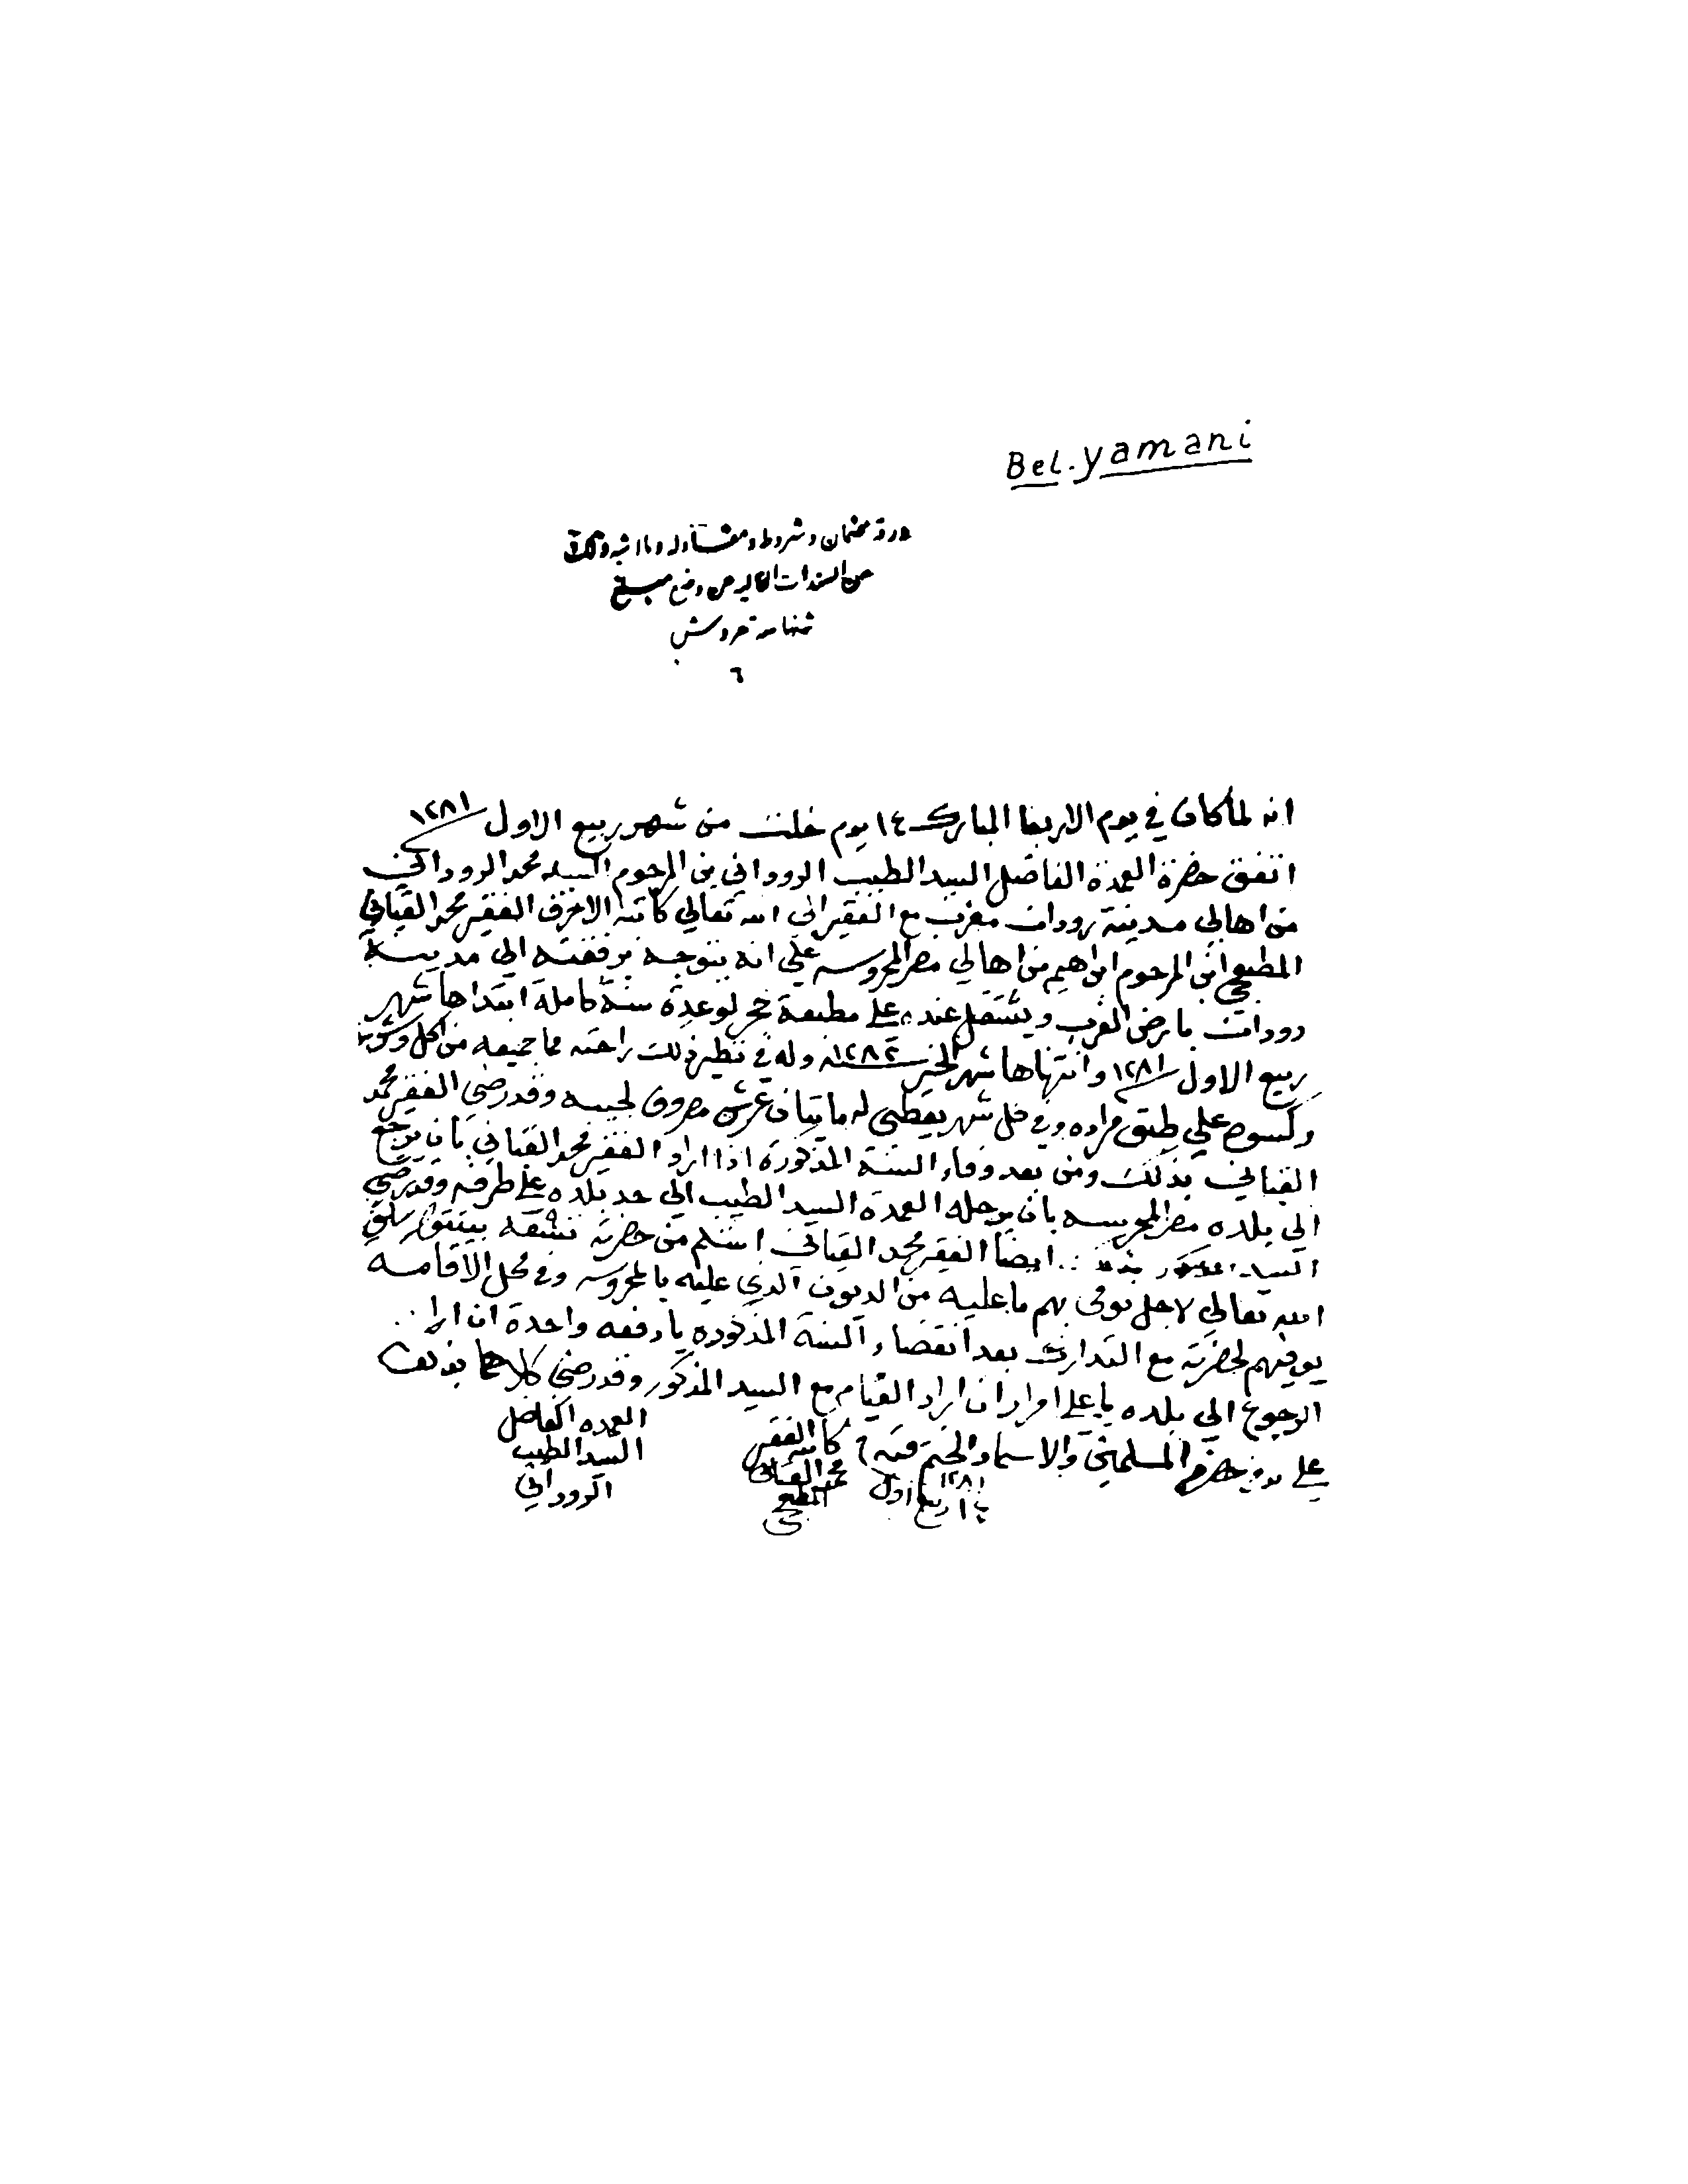 Bel.yamani
ورقة ضمان وشروط ومقاوله وما اشبه ذلك
من السندات الخاليه من وضع مبلغ
ثمنها مدة قروش
٦
انه لما كان في يوم الاربعا المبارك ١٤ يوم خلت من شهر ربيع الاول ١٢٨١
اتفق حضرة العمدة الفاضل السيد الطيب الروداني بن المرحوم السيد محمد الروداني
من اهالي مدينة رودان مغرب مع الفقير الى الله تعالي كاتبه الاحرف الفقير محمد القباني
المطبعجي ابن المرحوم ابراهيم من اهالي مصر المحروسه علي انه يتوجه برفقته الي مدينة
رودانت بارض الغرب ويشتغل عنده علي مطبعة حجر لوعدة سنة كاملة ابتداها شهر
ربيع الاول ١٢٨١ وانتهاها شهر الحجر ١٢٨٢ وله في نظير ذلك راحته مما جميعه من اكل وشرب
وكسوه علي طبق مراده وفي كل شهر يعطي له مايتان غرش مصروف لجيبه وقد رضي الفقير محمد
القباني بذلك ومن بعد وفاء السنة المذكورة اذا اراد الفقير محمد القباني بان يرجع
الي بلده مصر المحروسه بان يرحله العمدة السيد الطيب الي حد بلده علي طرفه وقد رضي
السيد المذكور بذلك ايضا الفقير محمد القباني استلم من حضرته
الله تعالي لاجل يوفي بهم ما عليه من الديون الذي عليه بالمحروسه وفي محل الاقامه
يوفيهم لحضرته مع التدارك بعد انقضاء السنة المذكوره يا دفعه واحدة ان اراد
الرجوع الي بلده يا علي امرار ان اراد القيام مع السيد المذكور وقد رضي كلاهما بذلك
علي يد من حضر من المسلمين والاسماء والختم فيه
كاتبه الفقير محمد القباني المطبعجي
العمده الفاضل
السيد الطيب
الروداني
١٢٨١
ربيع اول